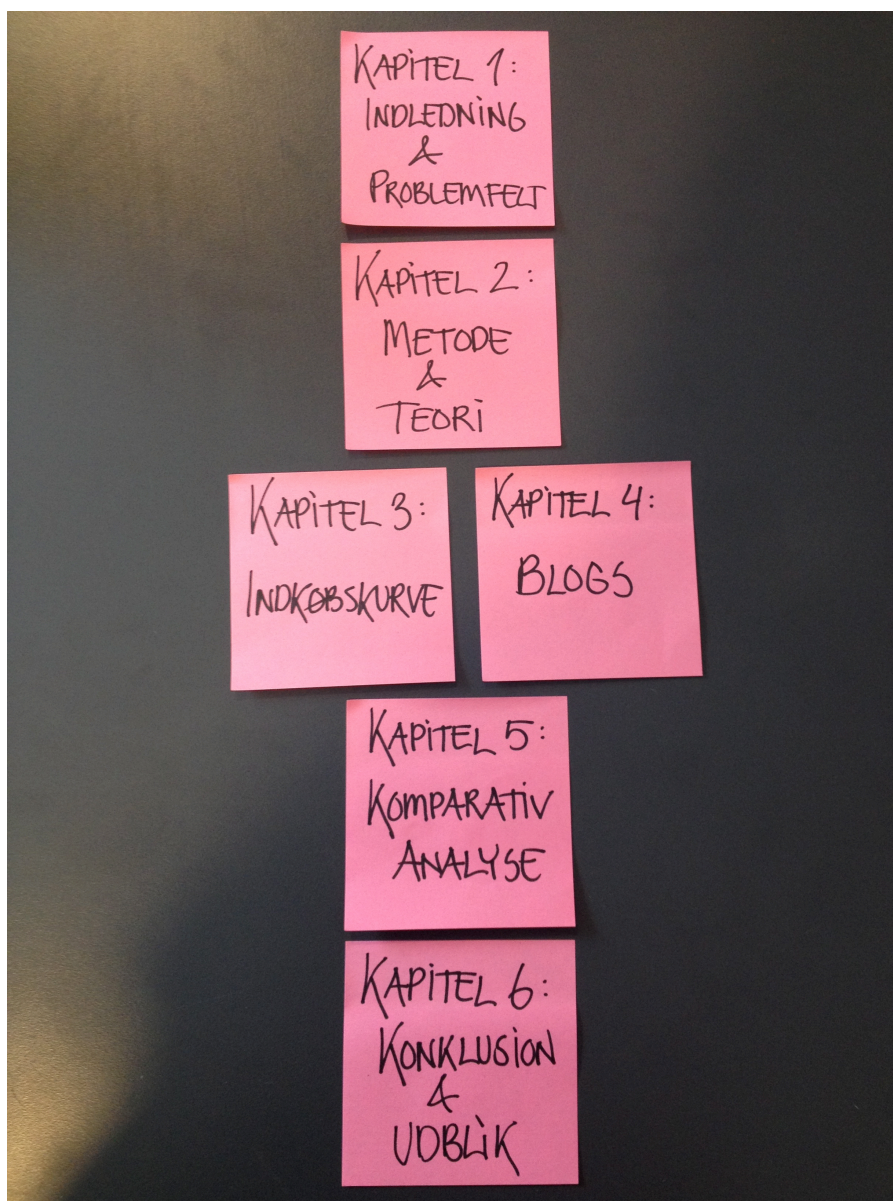 KAPITEL 1:
INDLEDNING
&
PROBLEMFELT
KAPITEL 2:
METODE
&
TEORI
KAPITEL 3:
INDKØBSKURVE
KAPITEL 4:
BLOGS
KAPITEL 5:
KOMPARATIV
ANALYSE
KAPITEL 6:
KONKLUSION
&
UDBLIK